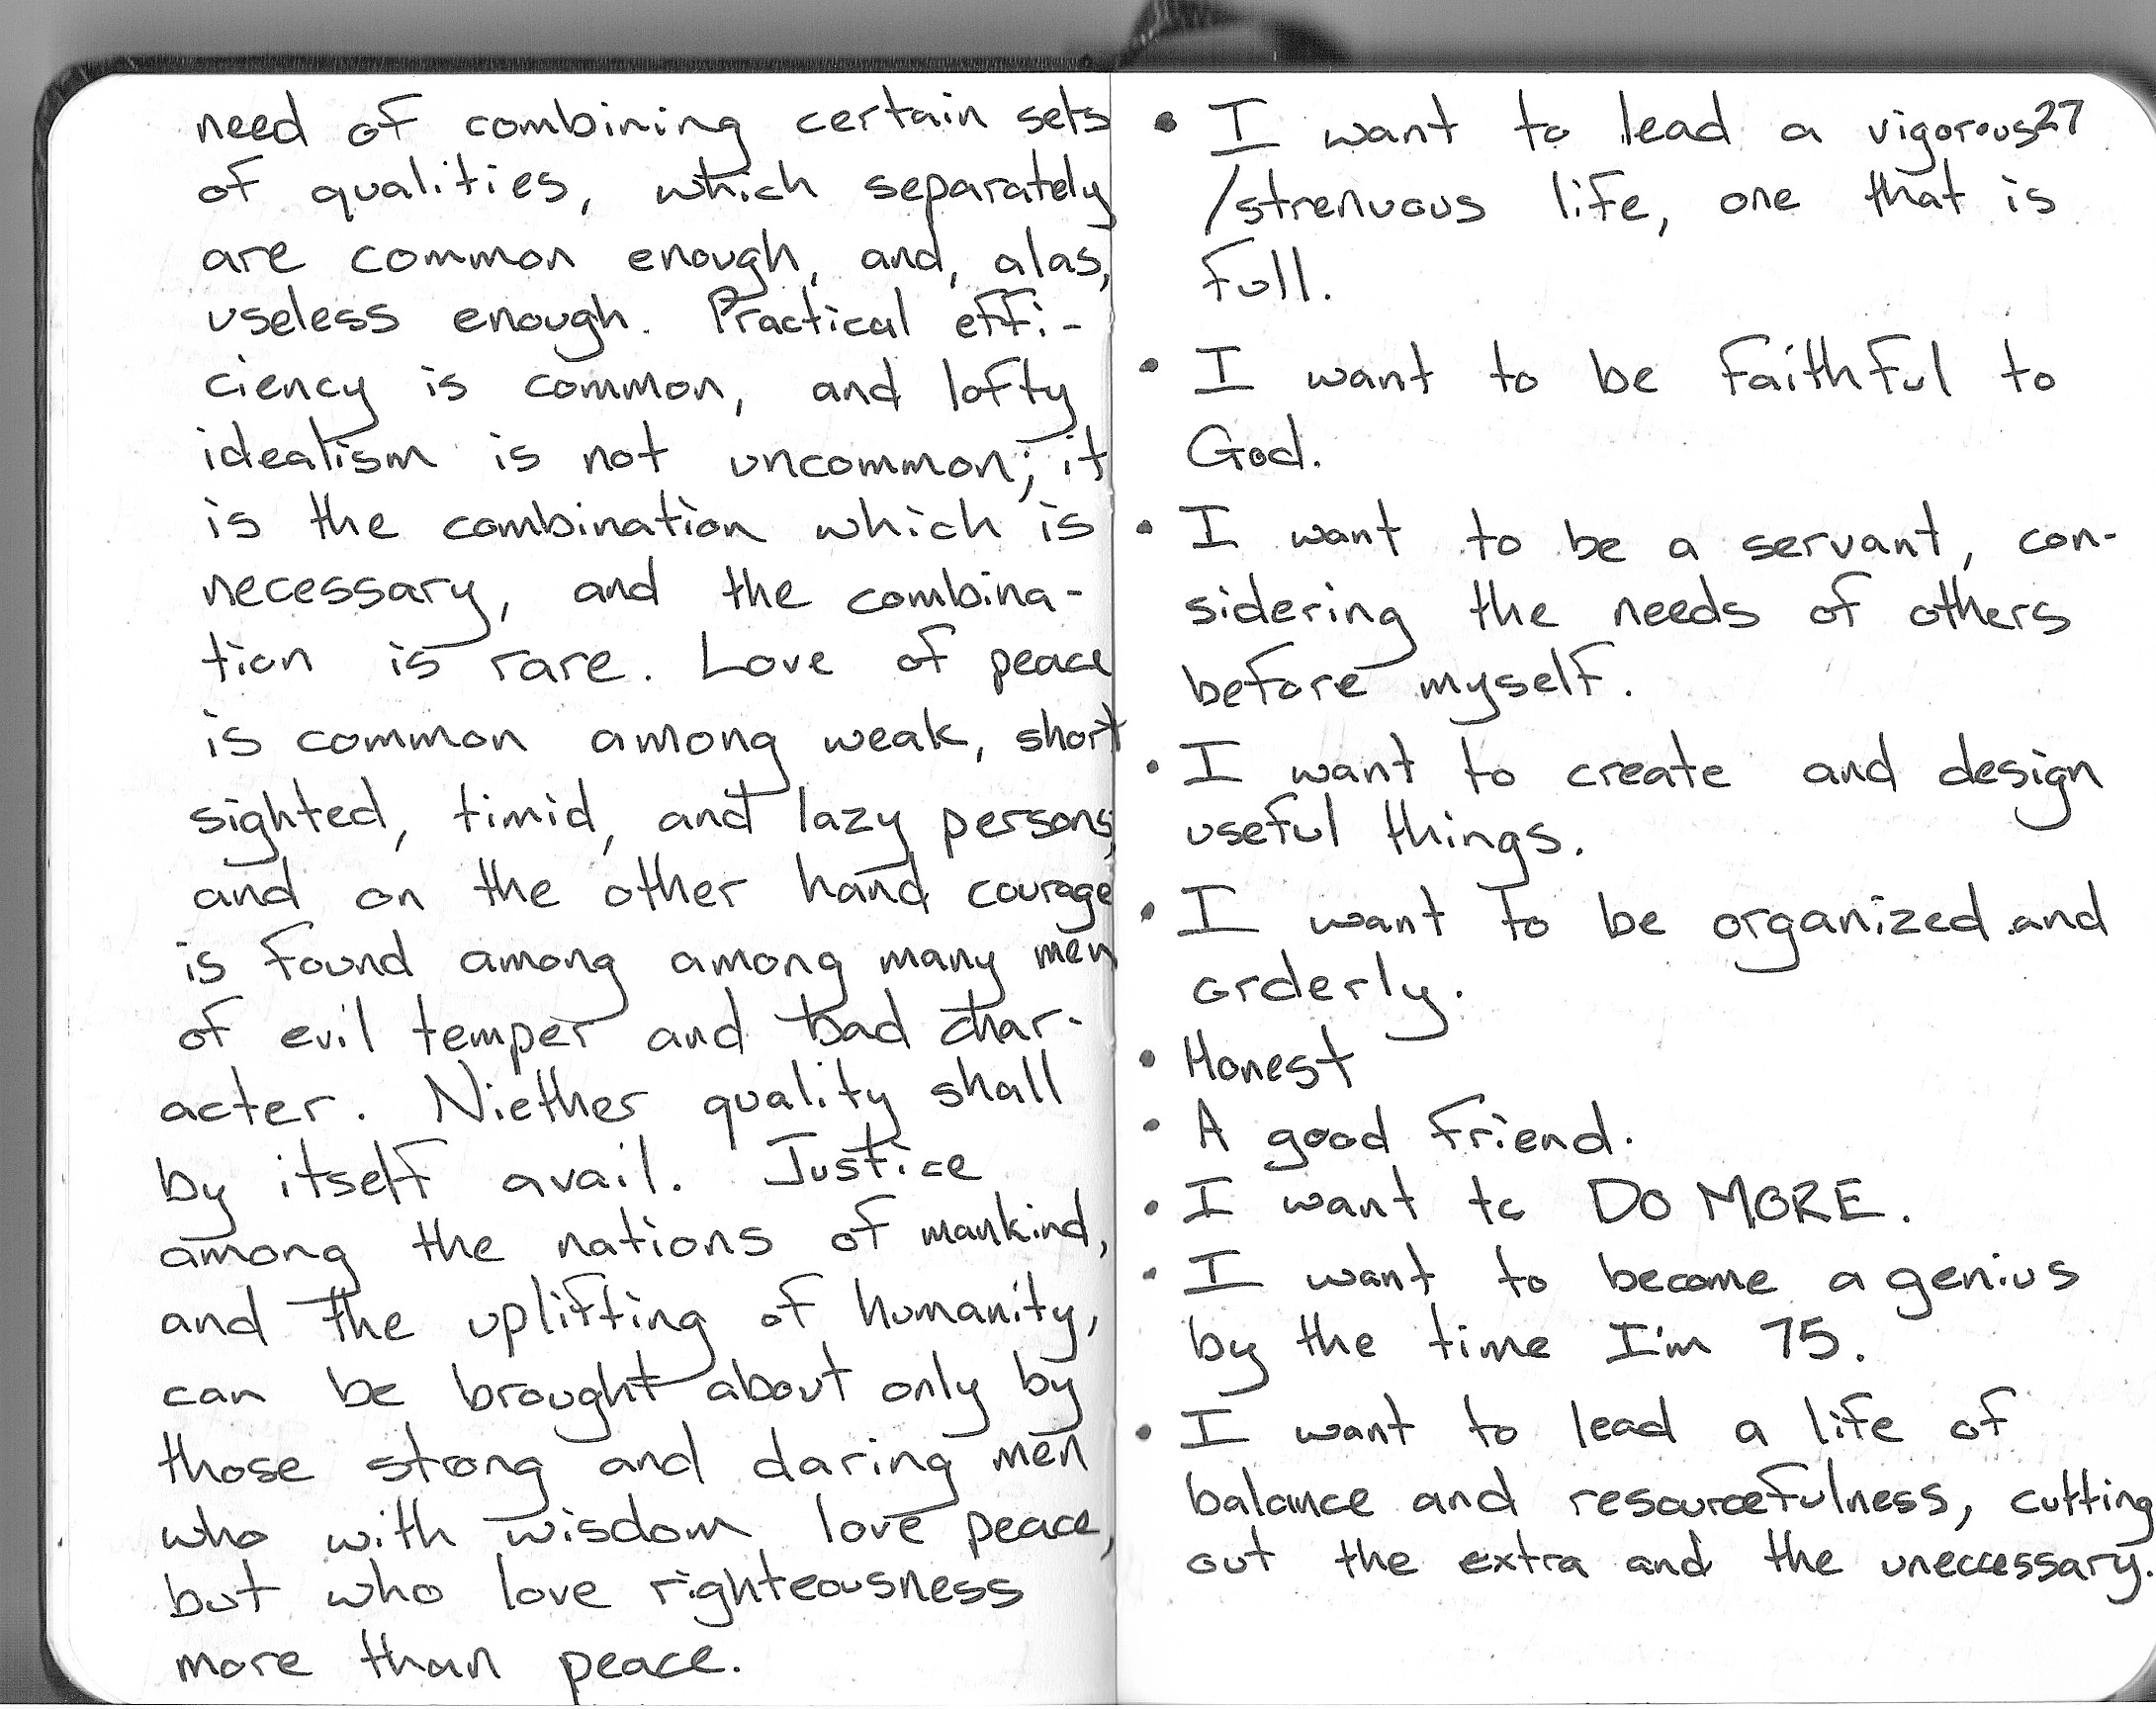 need of combining certain sets
of qualities, which separately
are common enough, and, alas,
useless enough. Practical effi-
ciency is common, and lofty
idealism is not uncommon; it
is the combination which is
necessary, and the combina-
tion is rare. Love of peace
is common among weak, short
sighted, timid, and lazy persons;
and on the other hand courage
is found among among many men
of evil temper and bad char-
acter. Niether quality shall
by itself avail. Justice
among the nations of mankind,
and the uplifting of humanity,
can be brought about only by
those strong and daring men
who with wisdom love peace,
but who love righteousness
more than peace.
27
• I want to lead a vigorous
/strenuous life, one that is
full.
• I want to be faithful to
God.
• I want to be a servant, con-
sidering the needs of others
before myself.
• I want to create and design
useful things.
• I want to be organized and
orderly.
• Honest
• A good friend.
• I want to DO MORE.
• I want to become a genius
by the time I'm 75.
• I want to lead a life of
balance and resourcefulness, cutting
out the extra and the uneccessary.